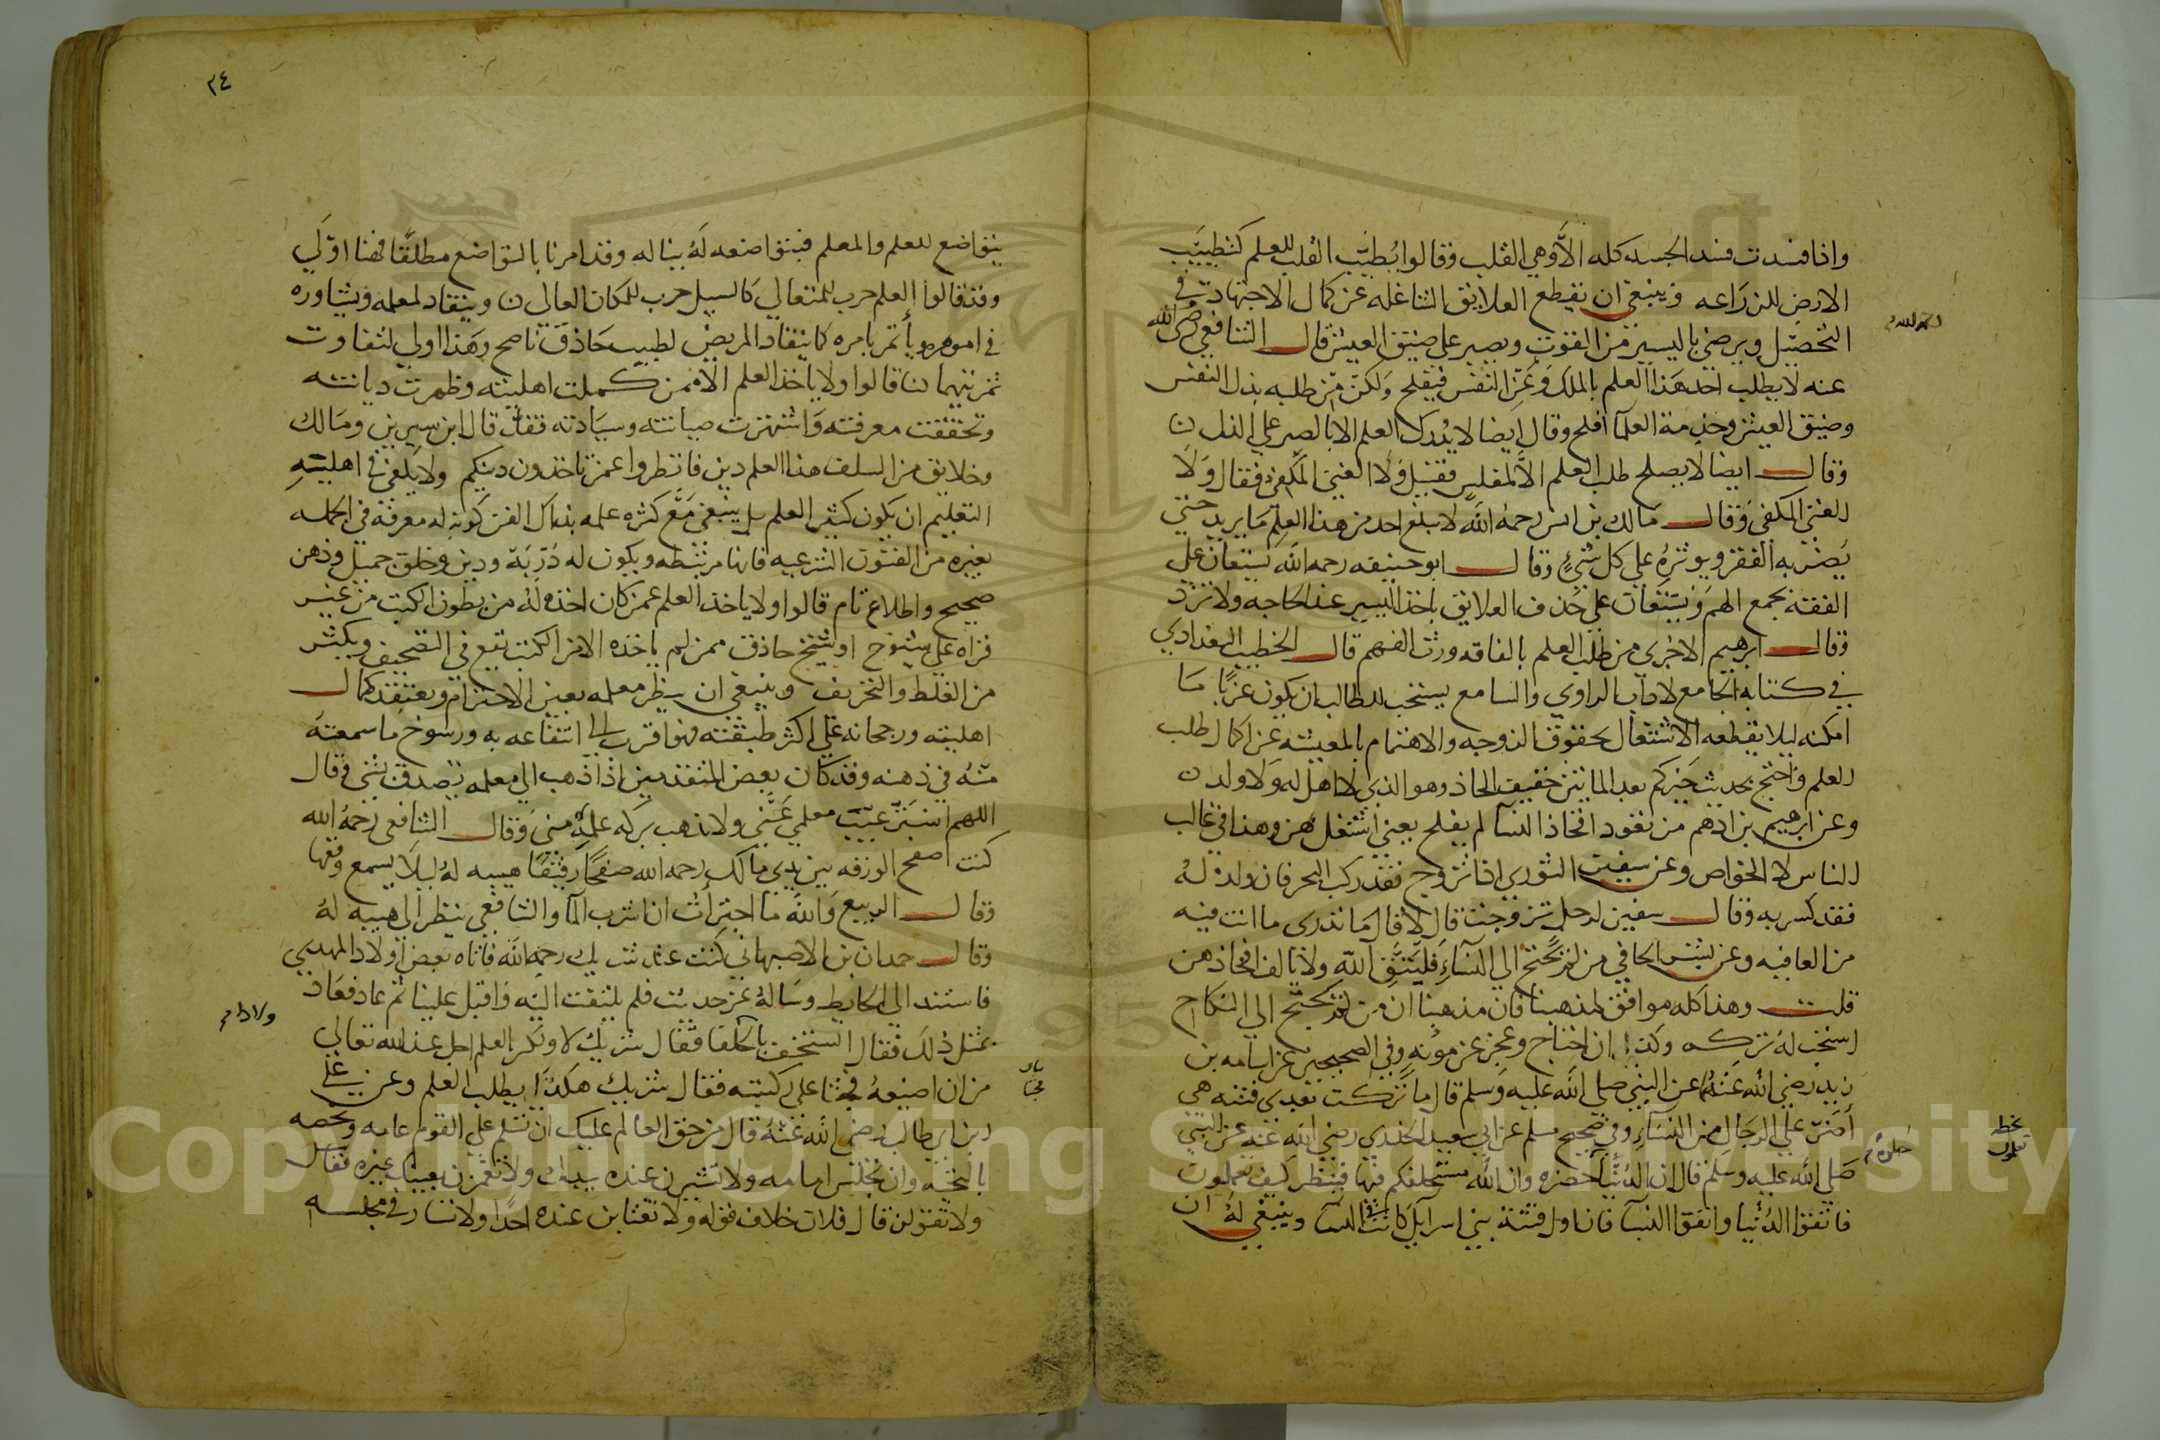 واذا فسدت فسد الجسد كله الا وهي القلب وقالوا يُطيّب القلب للعلم كتطييب
الارض للزراعه وينبغي ان يقطع العلايق الشاغله عن كمال الاجتهاد في
التحصيل ويرضى باليسير من القوت ويصبر على ضيق العيش قال الشافعي رضي الله
عنه لا يطلب احد هذا العلم بالملك وعز النفس فيفلح ولكن من طلبه بذل النفس
وضيق العيش وخدمة العلما افلح وقال ايضا لا يدرك العلم الا بالصبر على الذل
وقال ايضا لا يصلح طلب العلم الا لمفلس فقيل ولا الغني المكفي فقال ولا
الغني المكفي وقال مالك بن انس رحمه الله لا يبلغ احد من هذا العلم ما يريد حتى
يضر به الفقر ويوثره على كل شيء وقال ابو حنيفه رحمه الله يستعان على
الفقه بجمع الهم ويستعان على حذف العلايق باخذ اليسير عند الحاجه ولا تزد
وقال ابرهيم الاجري من طلب العلم بالفاقه ورث الفهم قال الخطيب البغدادي
في كتابه الجامع لاداب الراوي والسامع يستحب للطالب ان يكون عزبا ما
امكنه ليلا يقطعه الاشتغال بحقوق الزوجه والاهتمام بالمعيشه عن اكمال طلب
العلم واحتج بحديث خيركم بعد الماتين خفيف الحاذ وهو الذي لا اهل له ولا ولد
وعن ابرهيم بن ادهم من تعود افخاذ النسا لم يفلح يعني اشتغل بهن وهذا في غالب
الناس لا الخواص وعن سفين الثوري اذا تزوج فقد ركب البحر فان ولد له
فقد كسر به وقال سفين لرجل تزوجت قال لا قال ما تدري ما انت فيه
من العافيه وعن بشر الحافي من لم يحتج الى النساء فليتق الله ولا يالف افخاذهن
قلت وهذا كله موافق لمذهبنا فان مذهبنا ان من لم يحتج الى النكاح
استحب له تركه وكذا ان احتاج وعجز عن مونه وفي الصحيحين عن اسامه بن
زيد رضي الله عنهما عن النبي صلى الله عليه وسلم قال ما تركت بعدي فتنه هي
أضر على الرجال من النساء وفي صحيح مسلم عن ابي سعيد الخدري رضي الله عنه عن النبي
صلى الله عليه وسلم قال ان الدنيا خضره وان الله مستخلفكم فيها فينظر كيف تعملون
فاتقوا الدنيا واتقوا النسا فان اول فتنة بني اسرايل كانت في النسا وينبغي له ان
رحمه الله
حلوة
بخط
تعلمون
٣٤
يتواضع للعلم والمعلم فبتواضعه له يناله وقد امرنا بالتواضع مطلقا فهنا اولى
وقد قالوا العلم حرب للمتعالي كالسيل حرب للمكان العالي وينقاد لمعلمه ويشاوره
في اموره ويأتمر بامره كما ينقاد المريض لطبيب حاذق ناصح وهذا اولى لتفاوت
ثمرتيهما قالوا ولا ياخذ العلم الا ممن كملت اهليته وظهرت ديانته
وتحققت معرفته واشتهرت صيانته وسيادته فقد قال ابن سيرين ومالك
وخلايق من السلف هذا العلم دين فانظروا عمن تاخذون دينكم ولا يكفي في اهليته
التعليم ان يكون كثير العلم بل ينبغي مع كثره علمه بذلك الفن كونه له معرفة في الجمله
بغيره من الفنون الشرعيه فانها مرتبطه ويكون له دُرَبة ودين وخلق جميل وذهن
صحيح واطلاع تام قالوا ولا ياخذ العلم عمن كان اخذه له من بطون الكتب من غير
قراه على شيوخ او شيخ حاذق ممن لم ياخذه الا من الكتب يقع في التصحيف ويكثر
من الغلط والتحريف وينبغي ان ينظر معلمه بعين الاحترام ويعتقد كمال
اهليته ورجحانه على اكثر طبقته فهو اقرب الى انتفاعه به ورسوخ ما سمعه
منه في ذهنه وقد كان بعض المتقدمين اذا ذهب الى معلمه تصدق بشي وقال
اللهم استر عيب معلمي عني ولا تذهب بركه علمه مني وقال الشافعي رحمه الله
كنت اصفح الورقه بين يدي مالك رحمه الله صفحا رفيقا هيبه له ليلا يسمع وقعها
وقال الربيع والله ما اجترأت ان اشرب الما والشافعي ينظر الى هيبه له
وقال حمدان بن الاصبهاني كنت عند شريك رحمه الله فاتاه بعض اولاد المهدي
فاستند الى الحايط وساله عن حديث فلم يلتفت اليه واقبل علينا ثم عاد فعاد
بمثل ذلك فقال اتستخف بالخلفا فقال شريك لا ولكن العلم اجل عند الله تعالى
من ان اضيعهُ فجثا على ركبتيه فقال شريك هكذا يطلب العلم وعن علي
ابن ابي طالب رضي الله عنه قال من حق العالم عليك ان تسلم على القوم عامه وتخصه
بالتحيه وان تجلس امامه ولا تشيرن عنده بيدك ولا تغمزن بعينك غيره
ولا تقولن قال فلان خلاف قوله ولا تغتابن عنده احدًا ولا تسارر في مجلسه